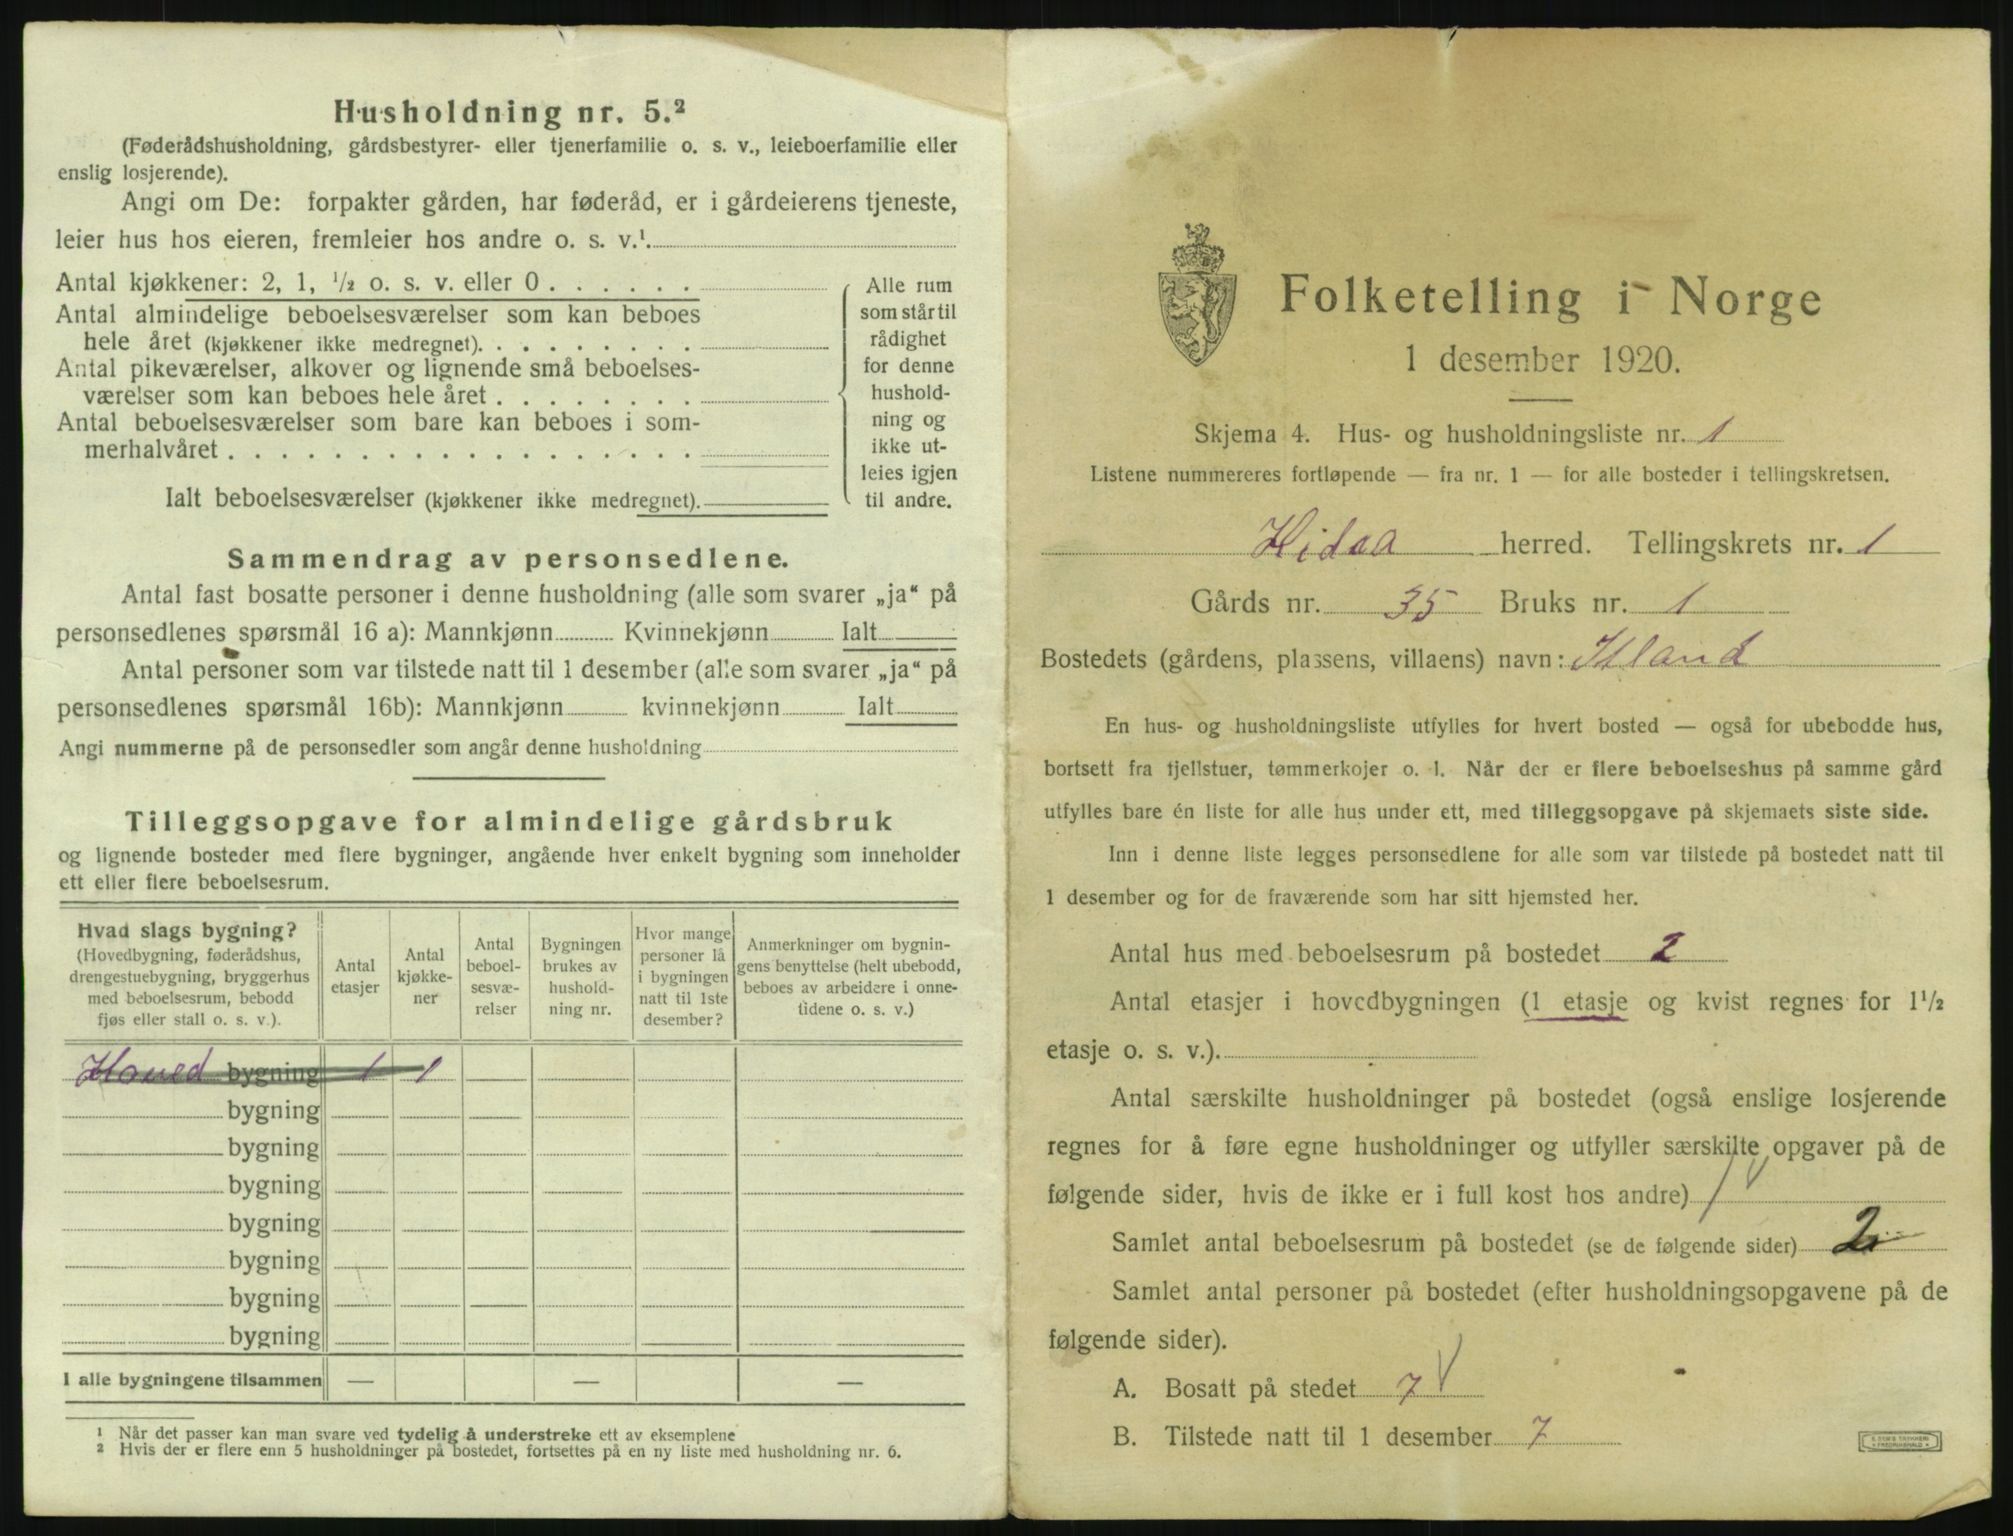 Husholdning nr. 5.²
(Føderådshusholdning, gårdsbestyrer- eller tjenerfamilie o. s. v., leieboerfamilie eller
enslig losjerende).
Angi om De: forpakter gården, har føderåd, er i gårdeierens tjeneste,
leier hus hos eieren, fremleier hos andre o. s. v.¹
Antal kjøkkener: 2, 1, ½ o. s. v. eller 0
Antal almindelige beboelsesværelser som kan beboes
hele året (kjøkkener ikke medregnet).
Antal pikeværelser, alkover og lignende små beboelses-
værelser som kan beboes hele året
Antal beboelsesværelser som bare kan beboes i som-
merhalvåret
Ialt beboelsesværelser (kjøkkener ikke medregnet).
Alle rum
som står til
rådighet
for denne
hushold-
ning og
ikke ut-
leies igjen
til andre.
Sammendrag av personsedlene.
Antal fast bosatte personer i denne husholdning (alle som svarer „ja“ på
personsedlenes spørsmål 16 a): Mannkjønn Kvinnekjønn Ialt
Antal personer som var tilstede natt til 1 desember (alle som svarer „ja“ på
personsedlenes spørsmål 16b): Mannkjønn kvinnekjønn Ialt
Angi nummerne på de personsedler som angår denne husholdning
Tilleggsopgave for almindelige gårdsbruk
og lignende bosteder med flere bygninger, angående hver enkelt bygning som inneholder
ett eller flere beboelsesrum.
Hvad slags bygning?
(Hovedbygning, føderådshus,
drengestuebygning, bryggerhus
med beboelsesrum, bebodd
fjøs eller stall o. s. v.).
Antal
etasjer
Antal
kjøkke-
ner
Antal
beboel-
sesvæ-
relser
Bygningen
brukes av
hushold-
ning nr.
Hvor mange
personer lå
i bygningen
natt til 1ste
desember?
Anmerkninger om bygnin-
gens benyttelse (helt ubebodd,
beboes av arbeidere i onne-
tidene o. s. v.)
Hoved bygning 1 1
bygning
bygning
bygning
bygning
bygning
bygning
bygning
I alle bygningene tilsammen — — —
¹ Når det passer kan man svare ved tydelig å understreke ett av eksemplene
² Hvis der er flere enn 5 husholdninger på bostedet, fortsettes på en ny liste med husholdning nr. 6.
Folketelling i Norge
1 desember 1920.
Skjema 4. Hus- og husholdningsliste nr. 1
Listene nummereres fortløpende — fra nr. 1 — for alle bosteder i tellingskretsen.
Hidra herred. Tellingskrets nr. 1
Gårds nr. 35 Bruks nr. 1
Bostedets (gårdens, plassens, villaens) navn: Itland
En hus- og husholdningsliste utfylles for hvert bosted — også for ubebodde hus,
bortsett fra fjellstuer, tømmerkojer o. l. Når der er flere beboelseshus på samme gård
utfylles bare én liste for alle hus under ett, med tilleggsopgave på skjemaets siste side.
Inn i denne liste legges personsedlene for alle som var tilstede på bostedet natt til
1 desember og for de fraværende som har sitt hjemsted her.
Antal hus med beboelsesrum på bostedet 2
Antal etasjer i hovedbygningen (1 etasje og kvist regnes for 1½
etasje o. s. v.).
Antal særskilte husholdninger på bostedet (også enslige losjerende
regnes for å føre egne husholdninger og utfyller særskilte opgaver på de
følgende sider, hvis de ikke er i full kost hos andre) 1
Samlet antal beboelsesrum på bostedet (se de følgende sider) 2
Samlet antal personer på bostedet (efter husholdningsopgavene på de
følgende sider).
A. Bosatt på stedet 7
B. Tilstede natt til 1 desember 7